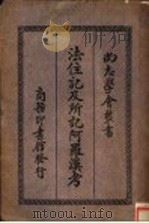 尚志學會叢書
法住記及所記阿羅漢考
商務印書館發行